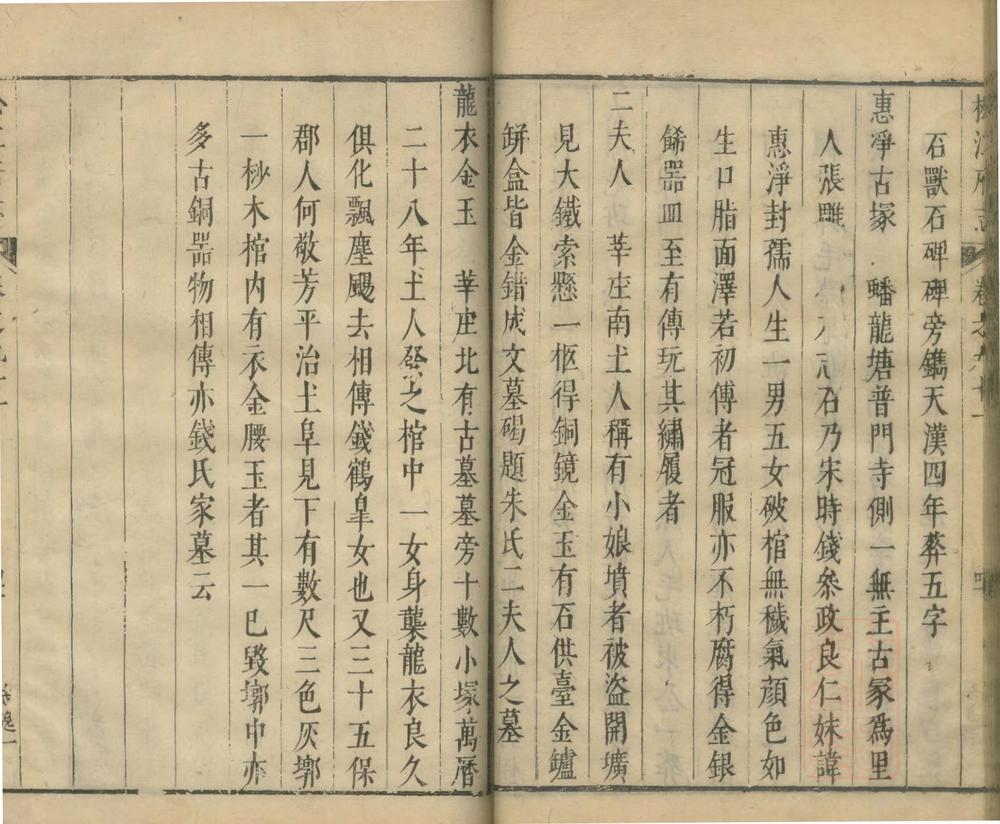 石獸石碑碑旁鐫天漢四年葬五字
惠凈古塚 蟠龍塘普門寺側一無主古冢爲里
人張雕 石乃宋時錢叅政良仁妹諱
惠淨封孺人生一男五女破棺無穢氣顏色如
生口脂面澤若初傳者冠服亦不朽腐得金銀
餙器皿至有傳玩其繡履者
二夫人 莘庄南土人稱有小娘墳者被盜開壙
見大鐵索懸一柩得銅鏡金玉有石供臺金鑪
缾盒皆金錯成文墓碣題朱氏二夫人之墓
龍衣金玉 莘庄北有古墓墓旁十數小塚萬曆
二十八年土人發之棺中一女身襲龍衣良久
俱化飄塵颺去相傳錢鶴臯女也又三十五保
郡人何敬芳平治土阜見下有數尺三色灰墎
一桫木棺内有衣金腰玉者其一已毀墎中亦
多古銅器物相傳亦錢氏家墓云